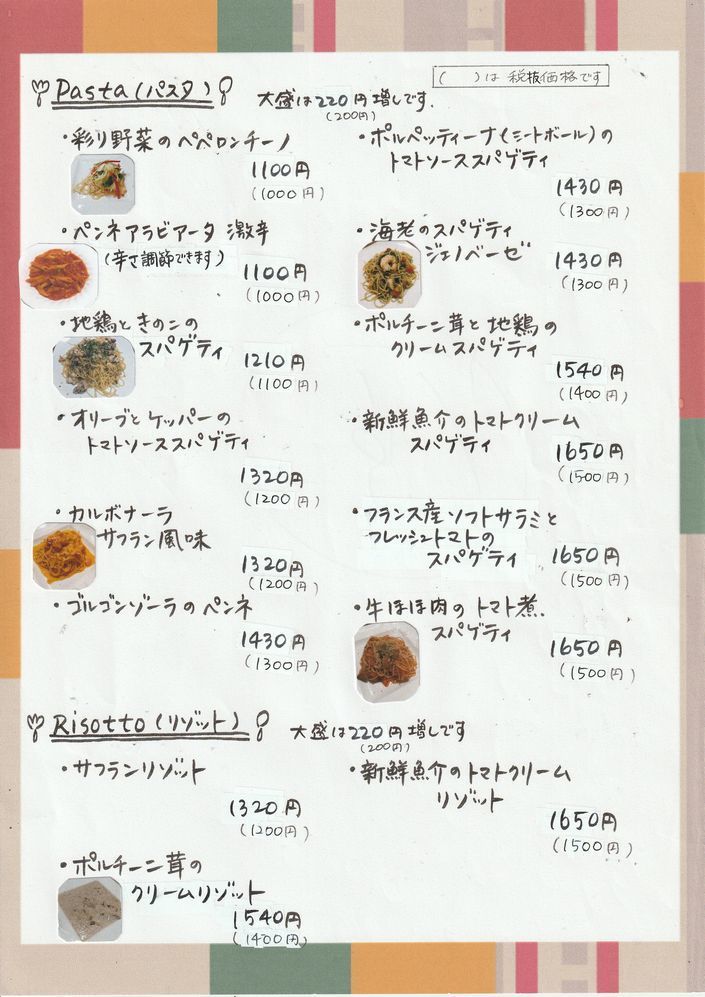 ( )は 税抜価格です
Pasta(パスタ)
大盛は220円増しです.
(200円)
・彩り野菜のペペロンチーノ
1100円
(1000円)
・ペンネアラビアータ 激辛
(辛さ調節できます)
1100円
(1000円)
・地鶏ときのこの
スパゲティ
1210円
(1100円)
・オリーブとケッパーの
トマトソーススパゲティ
1320円
(1200円)
・カルボナーラ
サフラン風味
1320円
(1200円)
・ゴルゴンゾーラのペンネ
1430円
(1300円)
・ポルペッティーナ(ミートボール)の
トマトソーススパゲティ
1430円
(1300円)
・海老のスパゲティ
ジェノベーゼ
1430円
(1300円)
・ポルチーニ茸と地鶏の
クリームスパゲティ
1540円
(1400円)
・新鮮魚介のトマトクリーム
スパゲティ
1650円
(1500円)
・フランス産ソフトサラミと
フレッシュトマトの
スパゲティ
1650円
(1500円)
・牛ほほ肉のトマト煮.
スパゲティ
1650円
(1500円)
Risotto(リゾット)
大盛は220円増しです
(200円)
・サフランリゾット
1320円
(1200円)
・ポルチーニ茸の
クリームリゾット
1540円
(1400円)
・新鮮魚介のトマトクリーム
リゾット
1650円
(1500円)